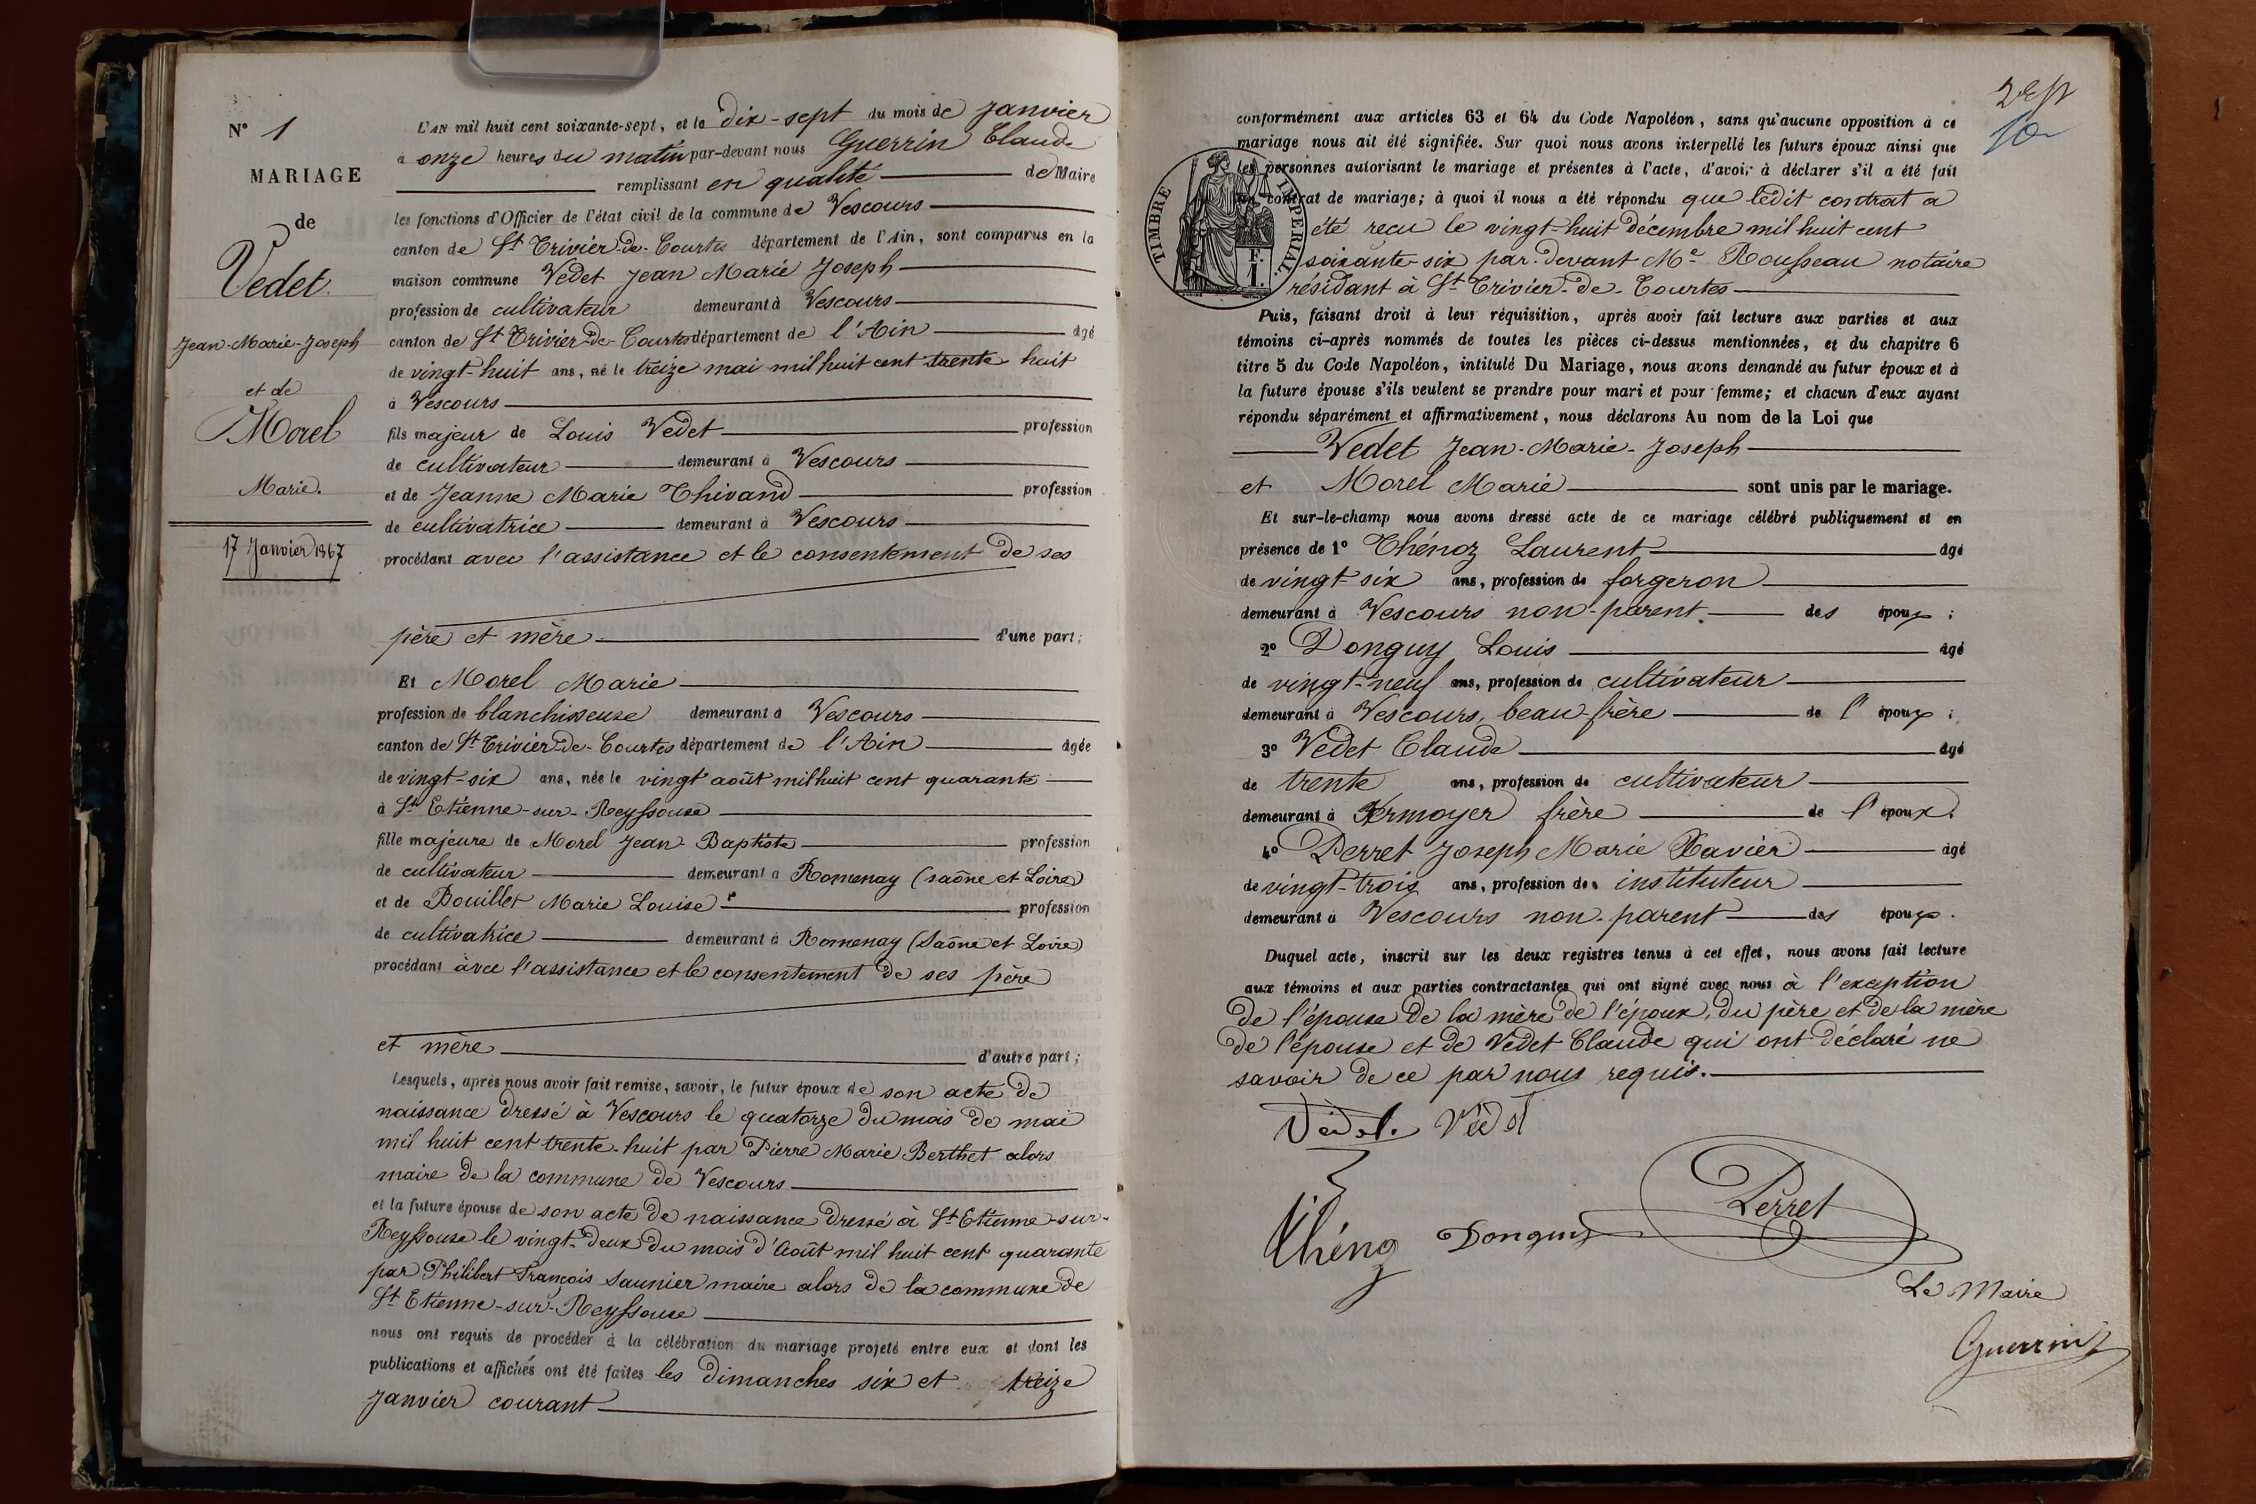 N° 1
MARIAGE
de
Vedet
Jean-Marie-Joseph
et de
Morel
Marie.
17 Janvier 1867
L'AN mil huit cent soixante-sept, et le dix-sept du mois de Janvier
à onze heures du matin par-devant nous Guerrin Claude
remplissant en qualité de Maire
les fonctions d'Officier de l'état civil de la commune de Vescours
canton de St Trivier-de-Courtes département de l'Ain, sont comparus en la
maison commune Vedet Jean Marie Joseph
profession de cultivateur demeurant à Vescours
canton de St Trivier-de-Courtes département de l'Ain âgé
de vingt-huit ans, né le treize mai mil huit cent trente huit
à Vescours
fils majeur de Louis Vedet profession
de cultivateur demeurant à Vescours
et de Jeanne Marie Thivand profession
de cultivatrice demeurant à Vescours
procédant avec l'assistance et le consentement de ses
père et mère d'une part;
Et Morel Marie
profession de blanchisseuse demeurant à Vescours
canton de St Trivier-de-Courtes département de l'Ain âgée
de vingt-six ans, née le vingt août mil huit cent quarante
à St Etienne-sur-Reyssouze
fille majeure de Morel Jean Baptiste profession
de cultivateur demeurant à Romenay (Saône et Loire)
et de Bouillet Marie Louise profession
de cultivatrice demeurant à Romenay (Saône et Loire)
procédant avec l'assistance et le consentement de ses père
et mère d'autre part;
Lesquels, après nous avoir fait remise, savoir, le futur époux de son acte de
naissance dressé à Vescours le quatorze du mois de mai
mil huit cent trente-huit par Pierre Marie Berthet alors
maire de la commune de Vescours
et la future épouse de son acte de naissance dressé à St Etienne-sur-
Reyssouze le vingt-deux du mois d'Août mil huit cent quarante
par Philibert François Saunier maire alors de la commune de
St Etienne-sur-Reyssouze
nous ont requis de procéder à la célébration du mariage projeté entre eux et dont les
publications et affiches ont été faites les dimanches six et treize
Janvier courant
conformément aux articles 63 et 64 du Code Napoléon, sans qu'aucune opposition à ce
mariage nous ait été signifiée. Sur quoi nous avons interpellé les futurs époux ainsi que
les personnes autorisant le mariage et présentes à l'acte, d'avoir à déclarer s'il a été fait
contrat de mariage; à quoi il nous a été répondu que ledit contrat a
été reçu le vingt-huit décembre mil huit cent
soixante-six par-devant Me Rousseau notaire
résidant à St Trivier-de-Courtes
TIMBRE IMPERIAL.
F.
1.
Puis, faisant droit à leur réquisition, après avoir fait lecture aux parties et aux
témoins ci-après nommés de toutes les pièces ci-dessus mentionnées, et du chapitre 6
titre 5 du Code Napoléon, intitulé Du Mariage, nous avons demandé au futur époux et à
la future épouse s'ils veulent se prendre pour mari et pour femme; et chacun d'eux ayant
répondu séparément et affirmativement, nous déclarons Au nom de la Loi que
Vedet Jean-Marie-Joseph
et Morel Marie sont unis par le mariage.
Et sur-le-champ nous avons dressé acte de ce mariage célébré publiquement et en
présence de 1° Thénoz Laurent âgé
de vingt-six ans, profession de forgeron
demeurant à Vescours non-parent des époux;
2° Donguy Louis âgé
de vingt-neuf ans, profession de cultivateur
demeurant à Vescours, beau-frère de l'époux;
3° Vedet Claude âgé
de trente ans, profession de cultivateur
demeurant à Vermoyer frère de l'époux.
4° Perret Joseph Marie Xavier âgé
de vingt-trois ans, profession de instituteur
demeurant à Vescours non-parent des époux.
Duquel acte, inscrit sur les deux registres tenus à cet effet, nous avons fait lecture
aux témoins et aux parties contractantes qui ont signé avec nous à l'exception
de l'épouse de la mère de l'époux, du père et de la mère
de l'épouse et de Vedet Claude qui ont déclaré ne
savoir de ce par nous requis.
Vedet. Vedet
Perret
Thénoz Donguy
Le Maire
Guerrin